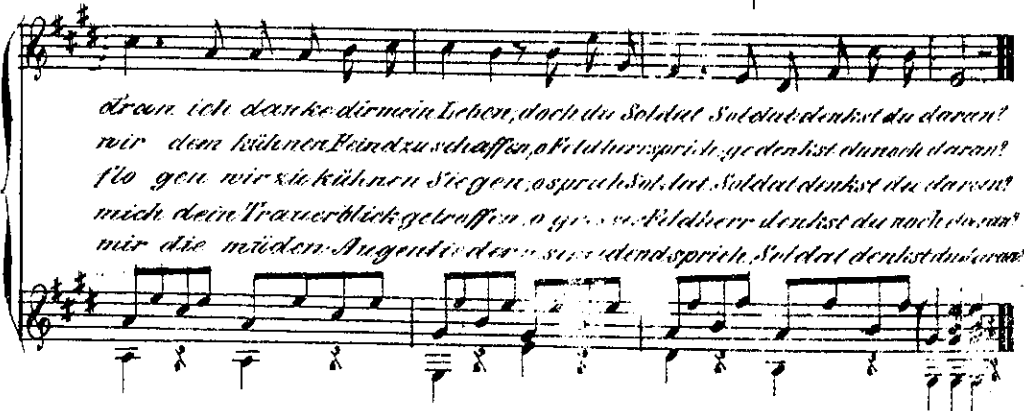 dran ich danke dir mein Leben, doch du Soldat Soldat denkst du daran?
wir dem kühnen Feind zu schaffen, o Feldherr sprich, gedenkst du noch daran?
flo gen wir zu kühnen Siegen, o sprich Soldat Soldat denkst du daran?
mich dein Trauerblick getroffen, o Feldherr denkst du noch daran?
mir die müden Augenlieder sprich, Soldat denkst du daran?